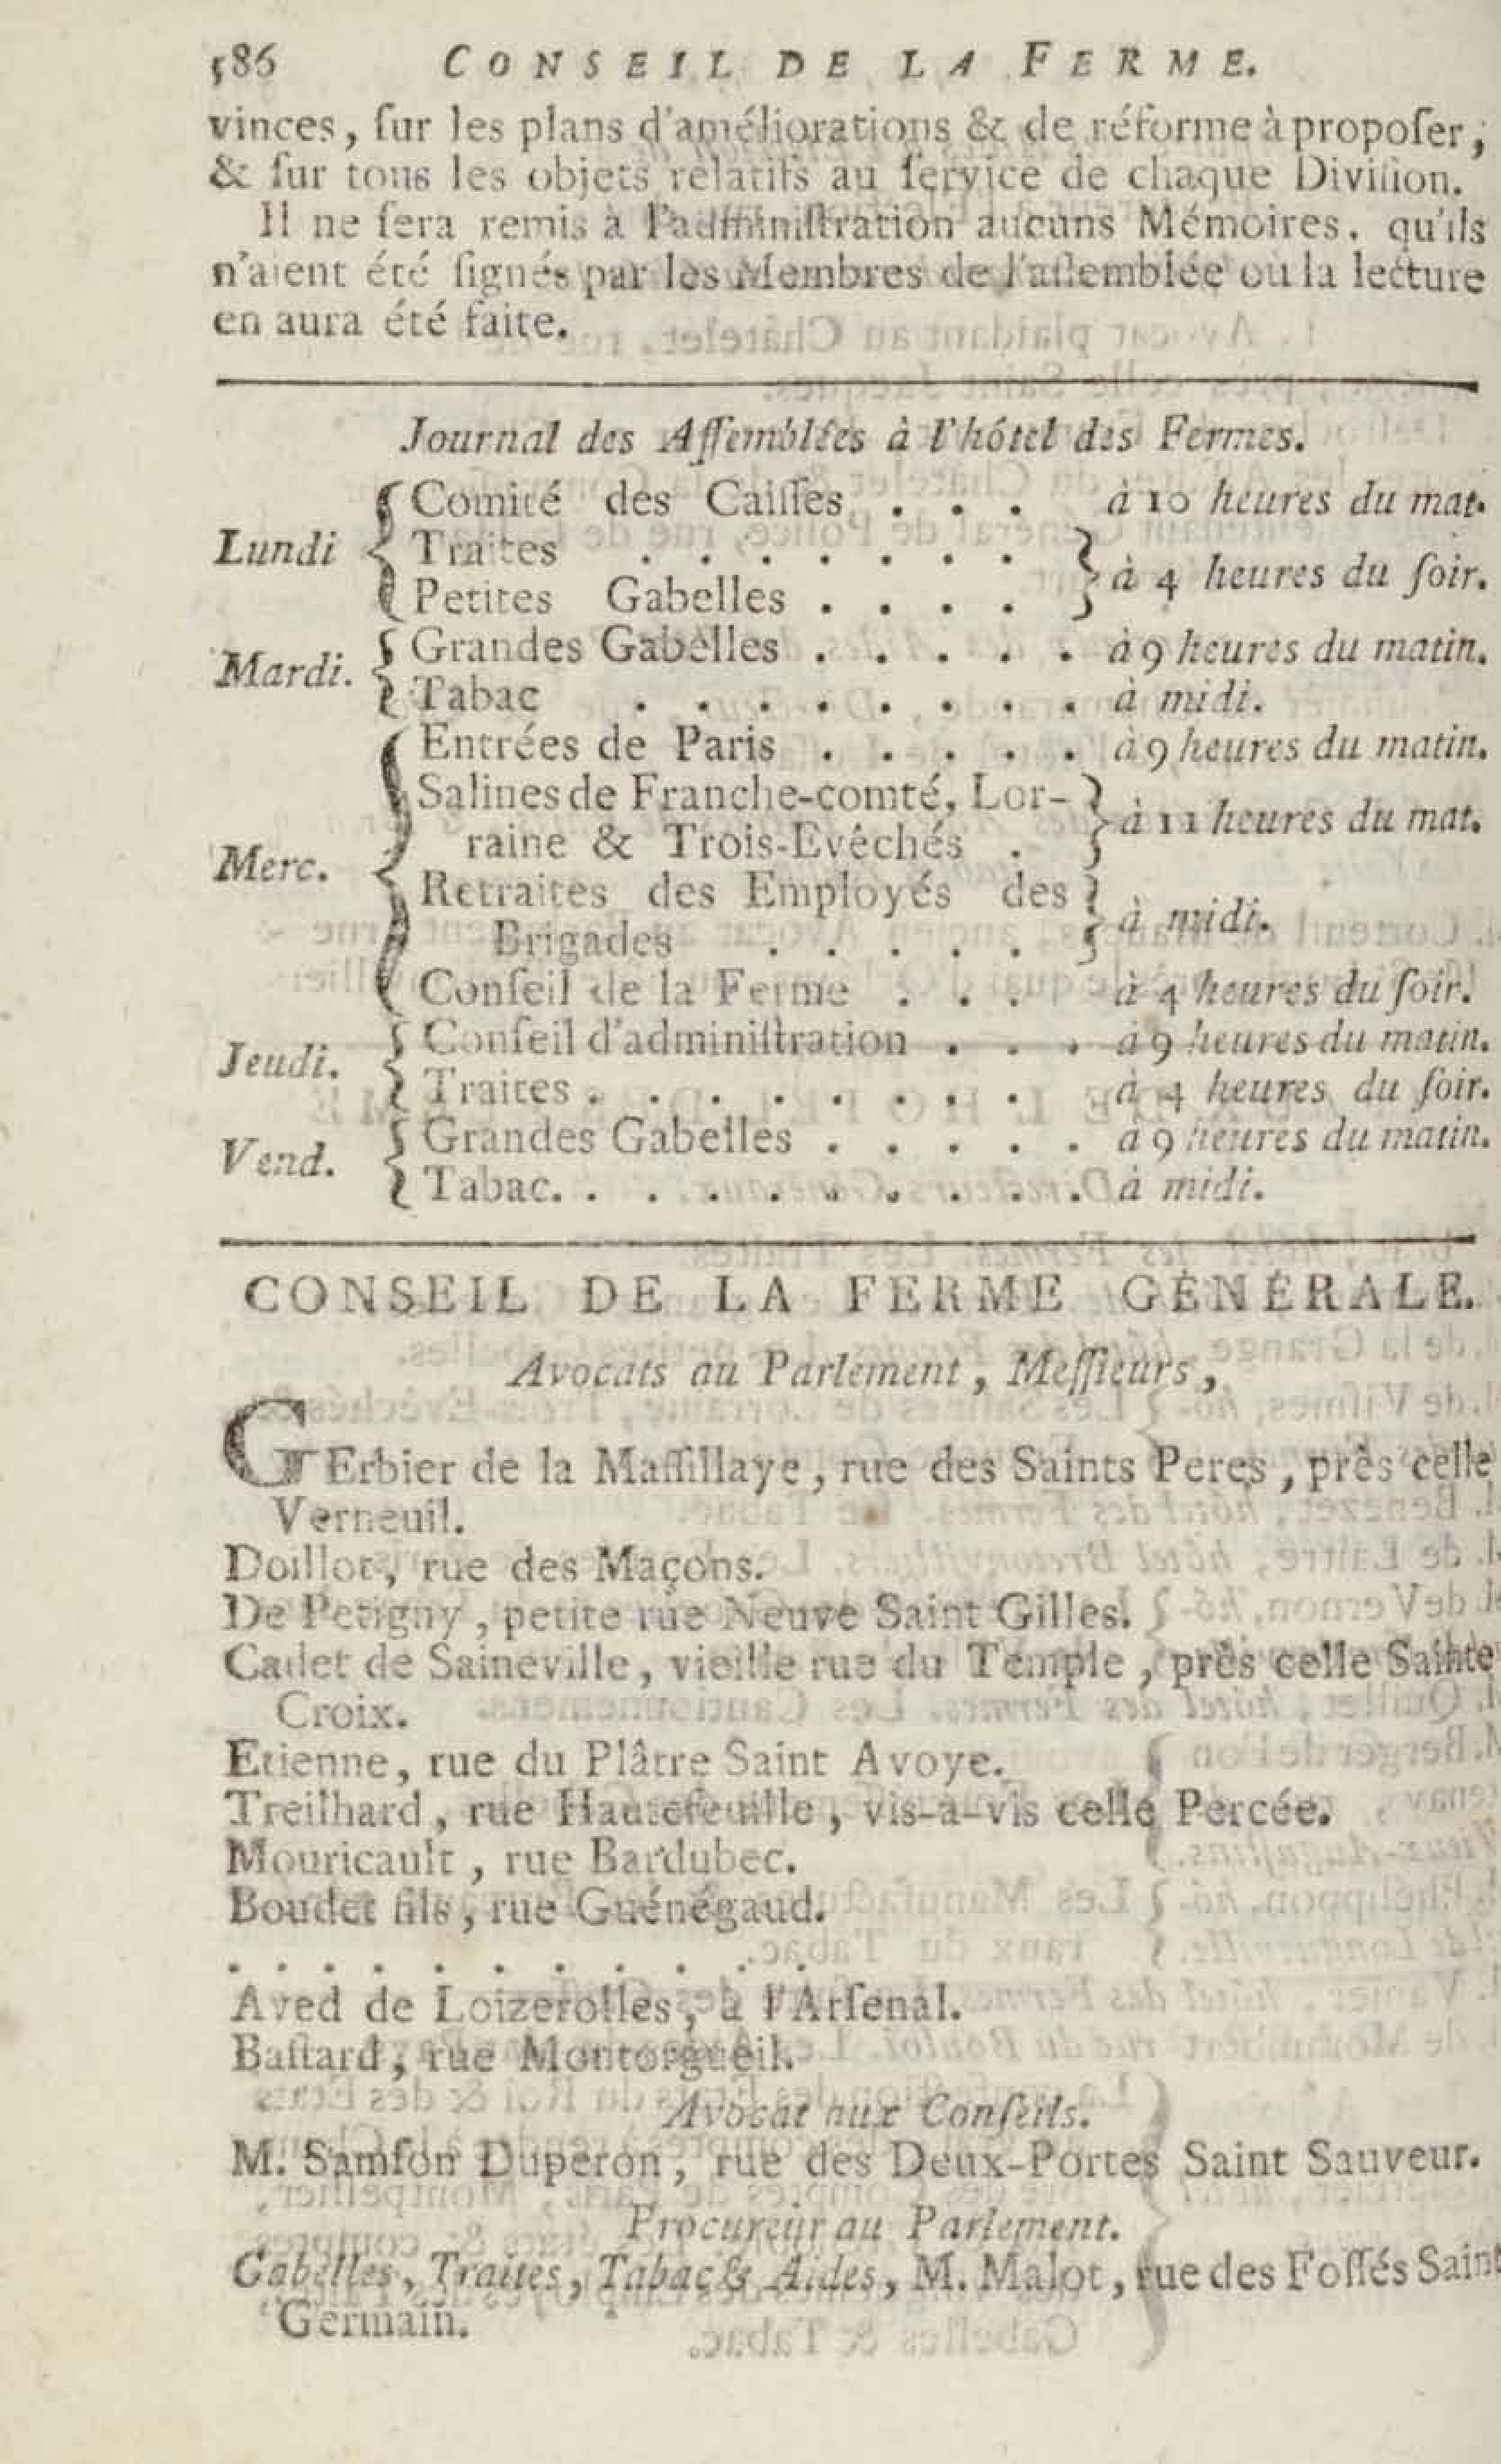 586 CONSEIL DE LA FERME.
vinces, ſur les plans d'améliorations & de réforme à propoſer,
& ſur tous les objets relatifs au ſervice de chaque Diviſion.
Il ne ſera remis à l'adminiſtration aucuns Mémoires, qu'ils
n'aient été ſignés par les Membres de l'aſſemblée où la lecture
en aura été faite.
Journal des Aſſemblées à l'hôtel des Fermes.
Comité des Caiſſes . . . à 10 heures du mat.
Lundi
Traites . . . . . . .
à 4 heures du ſoir.
Petites Gabelles . . . .
Grandes Gabelles . . . . . à 9 heures du matin.
Mardi.
Tabac . . . . . . . . à midi.
Entrées de Paris . . . . . à 9 heures du matin.
Salines de Franche-comté, Lor-
à 11 heures du mat.
raine & Trois-Evêchés .
Merc.
Retraites des Employés des
à midi.
Brigades . . . . .
Conſeil de la Ferme . . . à 4 heures du ſoir.
Conſeil d'adminiſtration . . . à 9 heures du matin.
Jeudi.
Traites . . . . . . . . à 4 heures du ſoir.
Grandes Gabelles . . . . . à 9 heures du matin.
Vend.
Tabac. . . . . . . . . . à midi.
CONSEIL DE LA FERME GÉNÉRALE.
Avocats au Parlement, Meſſieurs,
GErbier de la Maſſillaye, rue des Saints Peres, près celle
Verneuil.
Doillot, rue des Maçons.
De Petigny, petite rue Neuve Saint Gilles.
Cadet de Saineville, vieille rue du Temple, près celle Sainte
Croix.
Etienne, rue du Plâtre Saint Avoye.
Treilhard, rue Hautefeuille, vis-à-vis celle Percée.
Mouricault, rue Bardubec.
Boudet fils, rue Guénégaud.
. . . . . . . . . . . .
Aved de Loizerolles, à l'Arſenal.
Baſtard, rue Montorgueil.
Avocat aux Conſeils.
M. Samſon Duperon, rue des Deux-Portes Saint Sauveur.
Procureur au Parlement.
Gabelles, Traites, Tabac & Aides, M. Malot, rue des Foſſés Saint
Germain.